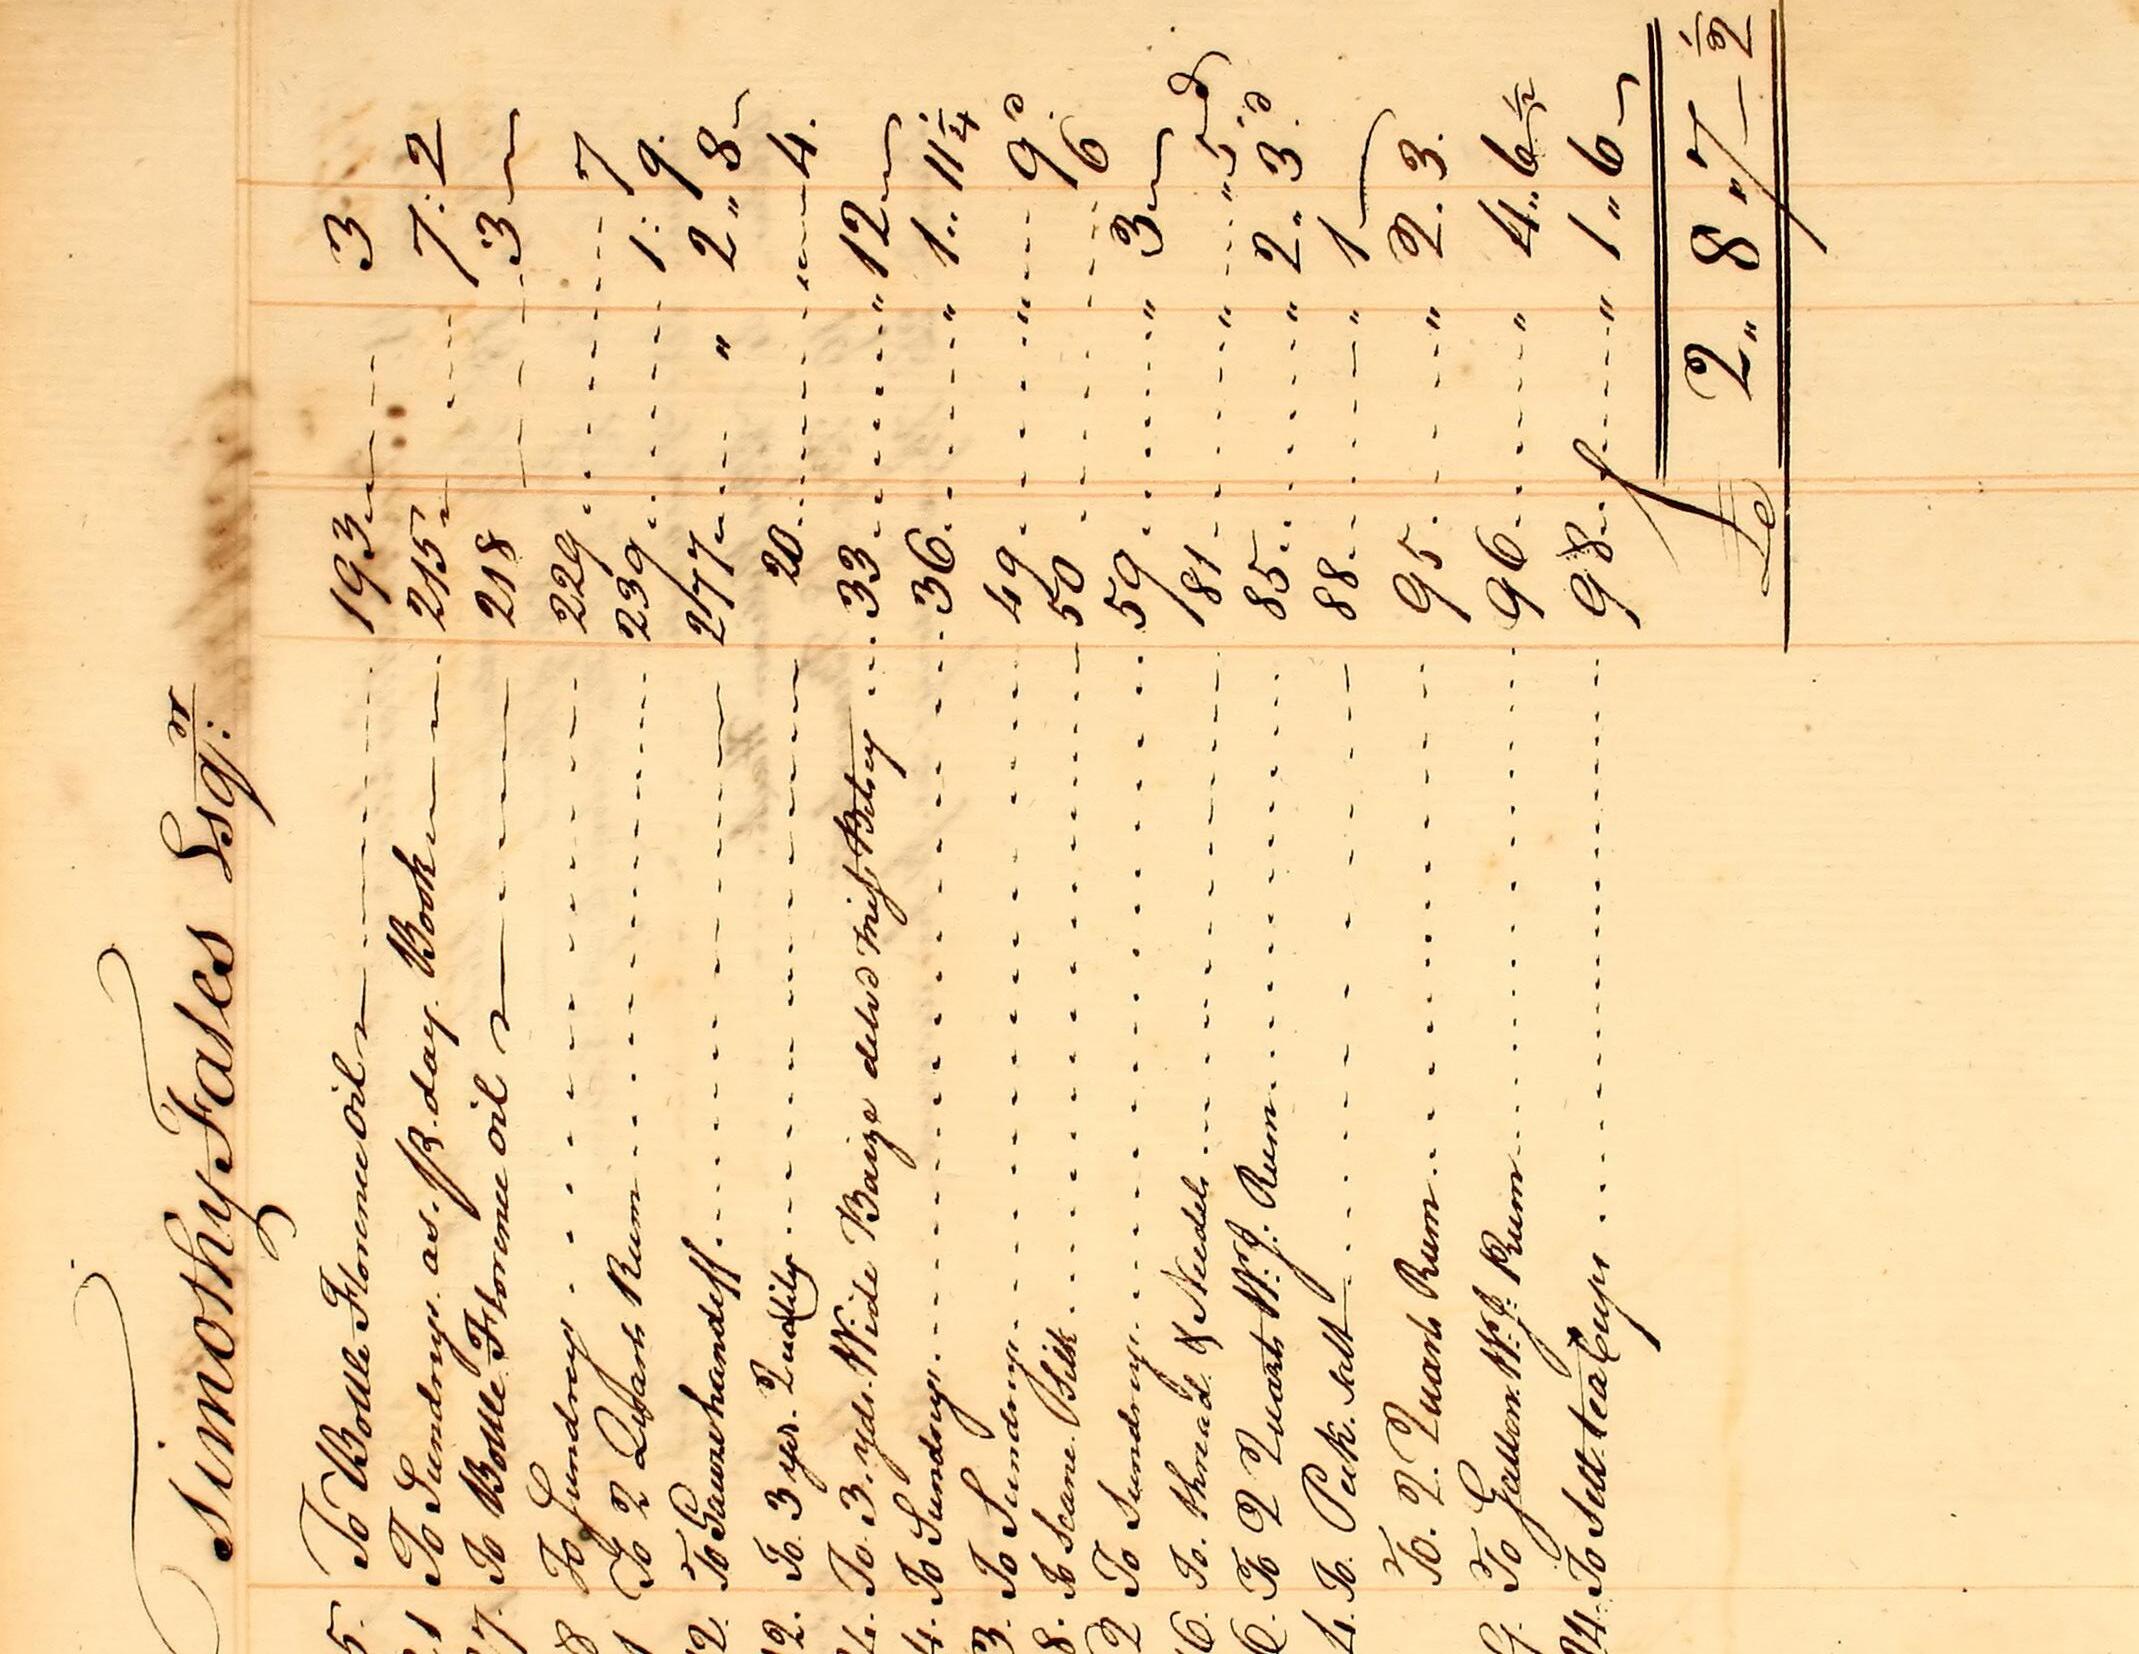 Timothy Fales Esqr:
5. To Bottle Florence Oil 193 3
1 To Sundrys. as. pr. day. Book 215 7:2
7. To Bottle Florence Oil 218 3
8 To Sundrys 229 7
1 To 2 Quarts Rum 239 1:9.
12. To 277 " 2"8
12. To. 3 yds. Quality 20 4.
4. To. 3. yds. Wide Baize deld Miss Betsey 33 " 12
4. To Sundrys. 36. " 1"11 1/4
3. To Sundrys. 49 " 9d.
8. To Scane Silk 50 6
2 To Sundrys. 59 " 3
16. To. thread. & Needls 81 " "5d
6. To 2 Quarts W. J. Rum 85. " 2"3.d
4. To. Peck. Salt 88. " 1
To. 2. Quarts Rum 95. " 2.3.
9. To Gallon. W. J. Rum 96. " 4"6 1/2
24. To Sett tea Cups 98. " 1"6
£ 2"8"7 1/2